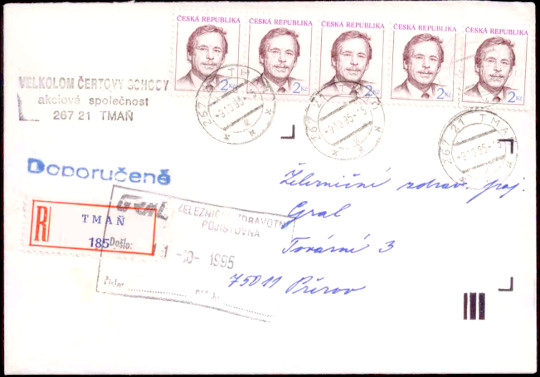 ČESKÁ REPUBLIKA ČESKÁ REPUBLIKA ČESKÁ REPUBLIKA ČESKÁ REPUBLIKA ČESKÁ REPUBLIKA
2 Kč 2 Kč 2 Kč 2 Kč 2 Kč
VELKOLOM ČERTOVY SCHODY
akciová společnost
267 21 TMAŇ
267 21 TMAŇ
267 21 TMAŇ
267 21 TMAŇ
Doporučeně
Železniční zdrav. poj.
Gral
Tovární 3
75011 Přerov
R
TMAŇ
185
GRAL
ŽELEZNIČNÍ ZDRAVOTNÍ
POJIŠŤOVNA
Došlo:
-10- 1995
Číslo: